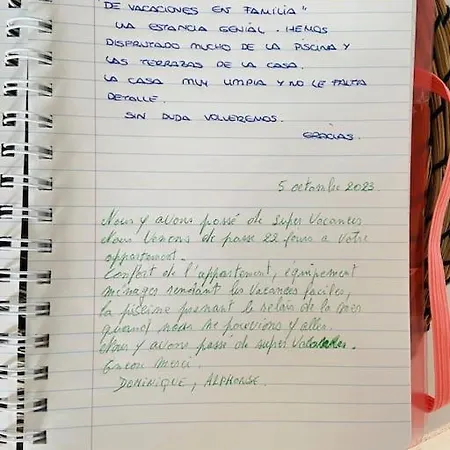 DE VACACIONES EN FAMILIA"
UNA ESTANCIA GENIAL. HEMOS
DISFRUTADO MUCHO DE LA PISCINA Y
LAS TERRAZAS DE LA CASA.
LA CASA MUY LIMPIA Y NO LE FALTA
DETALLE.
SIN DUDA VOLVEREMOS.
GRACIAS.
5 octombre 2023
Nous y avons passé de super vacances
Nous venons de passe 22 jours a votre
appartement.
Confort de l'appartement, équipement
ménages rendant les vacances faciles,
la piscine prenant le relais de la mer
quand nous ne pouvions y aller.
Nous y avons passé de super vacances.
Encore merci.
DOMINIQUE, ALPHONSE.